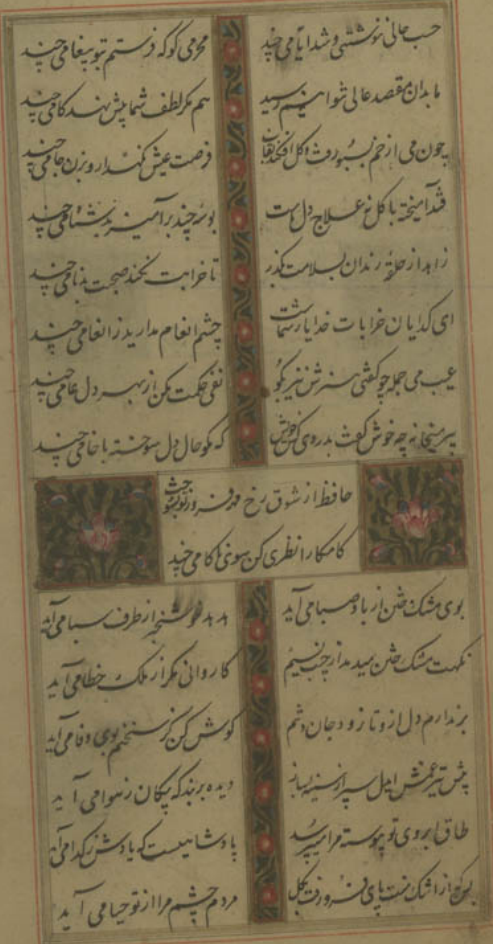 حسب حالی ننوشتی و شد ایامی چند محرمی کو که فرستم بتو پیغامی چند
ما بدان مقصد عالی نتوانیم رسید هم مگر لطف شما پیش نهد گامی چند
چون می از خم بسبو رفت و گل افکند نقاب فرصت عیش نگهدار و بزن جامی چند
قند آمیخته با گل نه علاج دل ماست بوسهٔ چند برآمیز بدشنامی چند
زاهد از حلقهٔ رندان بسلامت بگذر تا خرابت نکند صحبت بدنامی چند
ای گدایان خرابات خدا یار شماست چشم انعام مدارید ز انعامی چند
عیب می جمله چو گفتی هنرش نیز بگو نفی حکمت مکن از بهر دل عامی چند
پیر میخانه چه خوش گفت بدردی کش خویش که مگو حال دل سوخته با خامی چند
حافظ از شوق رخ مهر فروز تو بسوخت
کامکارا نظری کن سوی ناکامی چند
بوی مشک ختن از باد صبا می آید هدهد خوشخبر از طرف سبا می آید
نکهت مشک ختن میدمد از جیب نسیم کاروانی مگر از ملک خطا می آید
برندارم دل ازو تا نرود جان ز تنم گوش کن کز سخنم بوی وفا می آید
پیش تیر غمش ای دل سپر از سینه بساز دیده بربند که پیکان ز هوا می آید
طاق ابروی تو پیوسته مرا میپرسد پادشاهیست که یادش ز گدا می آید
بسکه از اشک منت پای فرو رفت بگل مردم چشم مرا از تو حیا می آید